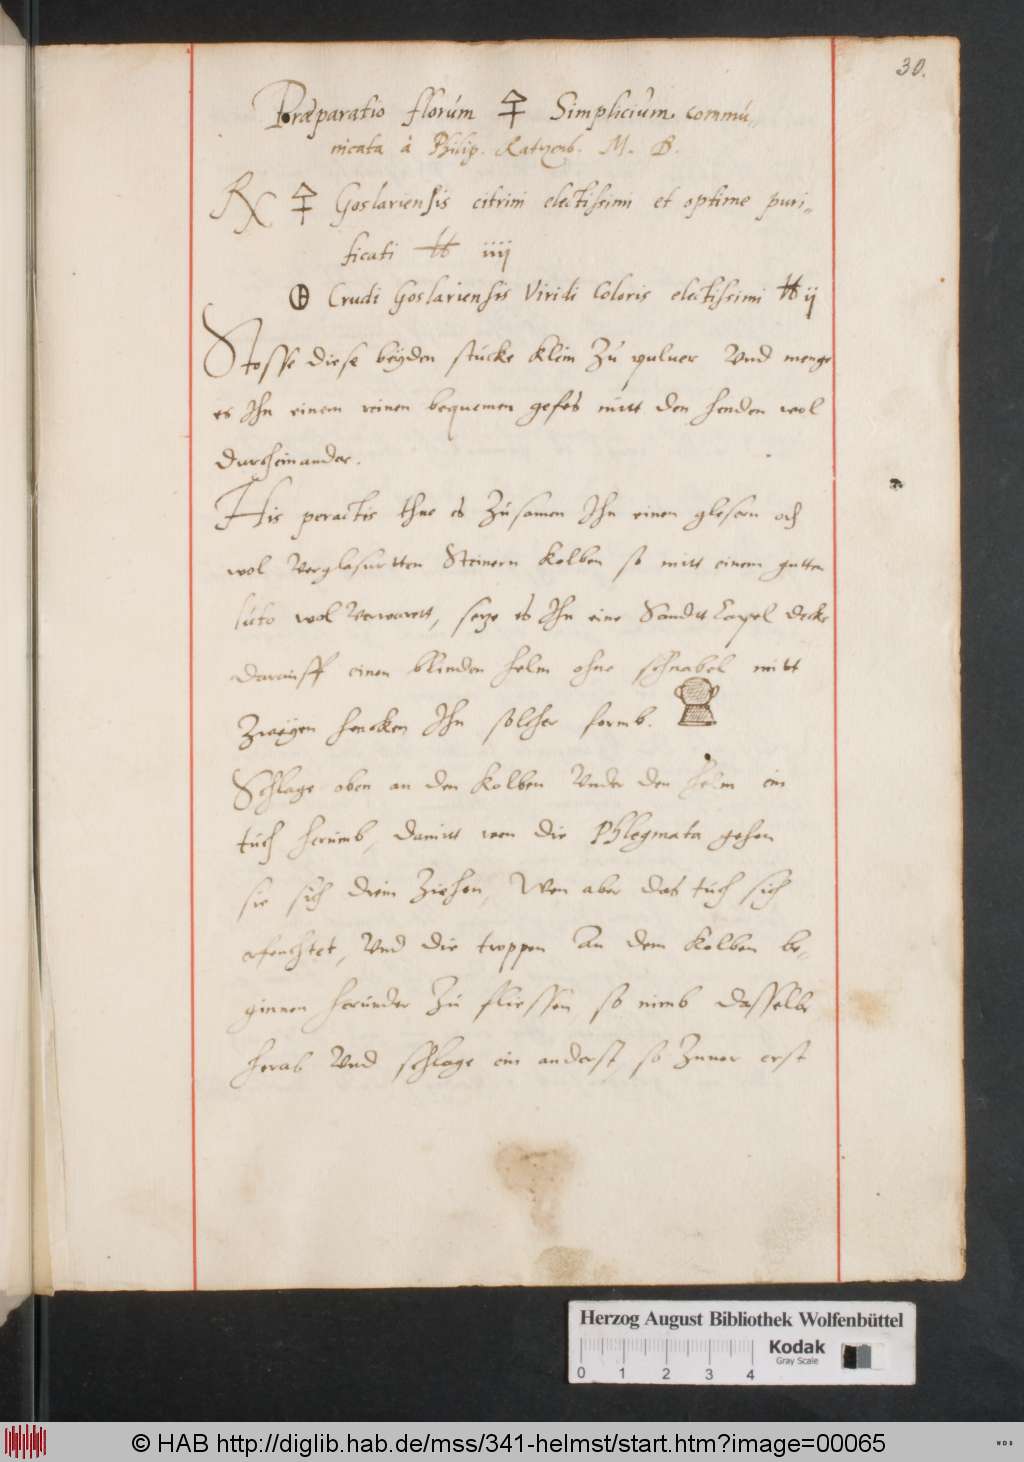 30.
Præparatio florúm 🜍 Simplicium commú„
nicata à Philip. M. B.
℞ 🜍 Goslariensis citrini electissimi et optime puri„
ficati ℔ iiij
🜕 Crudi Goslariensis Viridi Coloris electissimi ℔ ij
Stosse diese beÿden stúcke klein Zú puluer Vnd menge
es Ihn einem reinen bequemen gefes mitt den henden wol
durcheinander.
His peractis thue es Zúsamen Ihn einen glesern od
wol Verglasurtten Steinern Kolben so mitt einem gutten
lúto wol Verwarett, setze es Ihn eine Sandtt Capel decke
darauff einen blinden helm ohne schnabel mitt
Zweÿen hencken Ihn solcher formb.
Schlage oben an den Kolben Vnder den helm ein
túch herúmb, damitt wen die Phlegmata gehen
sie sich drein Ziehen, Wen aber das túch sich
erfeuchtet, Vnd die troppen An dem Kolben be„
ginnen herúnder Zú fliessen, so nimb dasselbe
herab Vnd schlage ein anderst, so Zuuor erst
Herzog August Bibliothek Wolfenbüttel
Kodak
Gray Scale
0 1 2 3 4
© HAB http://diglib.hab.de/mss/341-helmst/start.htm?image=00065
WDB